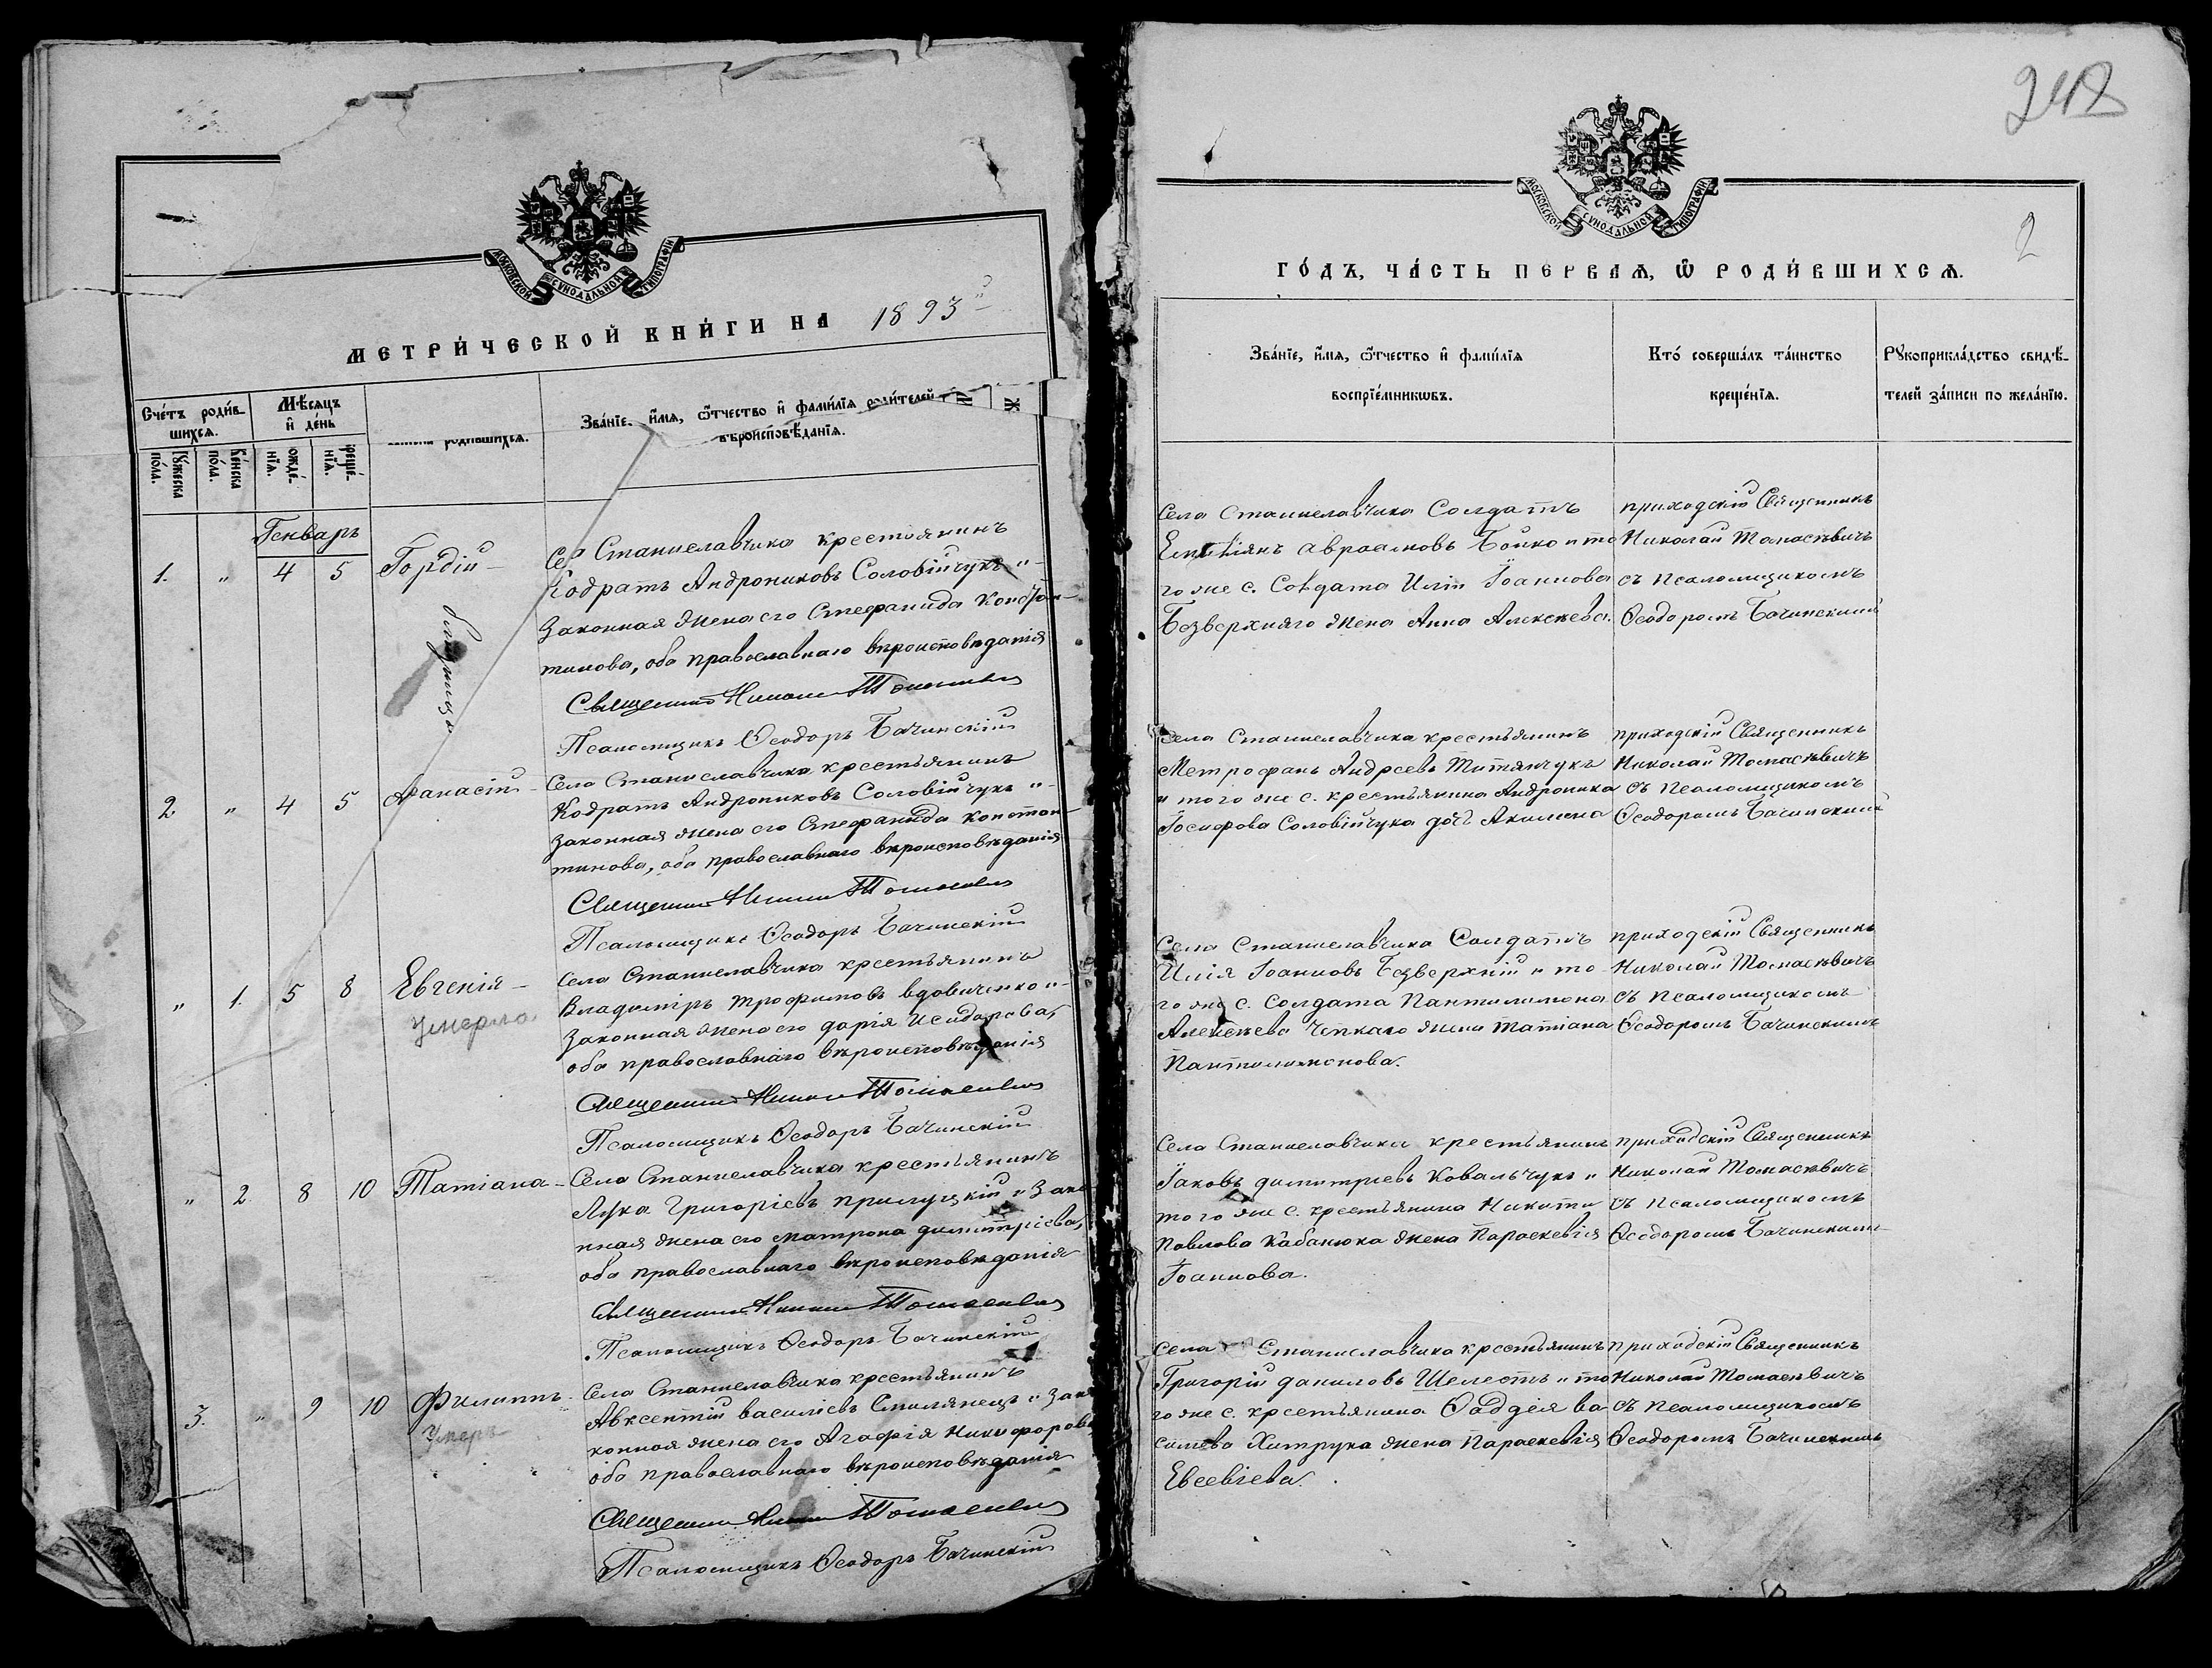 МОСКОВСКОЙ СУНОДАЛЬНОЙ ТИПОГРАФІИ
МЕТРИ́ЧЕСКОЙ КНИ́ГИ НА 1893й
Сче́тъ роди́в-
шихсѧ.
Мѣ́сѧцъ
и҆ де́нь
родившихсѧ.
Зва́нїе, и҆́мѧ, ѻ҆́тчество и҆ фами́лїѧ роди́телей
вѣроисповѣ́данїѧ.
Му́жеска
по́ла.
Же́нска
по́ла.
рожде́-
нїѧ.
креще́-
нїѧ.
Генварь
1. " 4 5 Гордій
Близнецы
Села Станиславчика крестьянинъ
Кодратъ Андрониковъ Соловійчукъ и
Законная жена его Стефанида Констан-
тинова, оба православнаго вѣроисповѣданія
Священникъ Николай Томасевич
Псаломщикъ Ѳеодоръ Бачинскій
2 " 4 5 Аѳанасій
Села Станиславчика крестьянинъ
Кодратъ Андрониковъ Соловійчукъ и
Законная жена его Стефанида Констан-
тинова, оба православнаго вѣроисповѣданія
Священникъ Николай Томасевич
Псаломщикъ Ѳеодоръ Бачинскій
" 1. 5 8 Евгенія
Умерла
Села Станиславчика крестьянинъ
Владиміръ Трофимовъ Вдовиченко и
Законная жена его Дарія Исидорова,
оба православнаго вѣроисповѣданія
Священникъ Николай Томасевич
Псаломщикъ Ѳеодоръ Бачинскій
" 2. 8 10 Татіана
Села Станиславчика крестьянинъ
Лука Григоріевъ Прилуцкій и Зако
нная жена его Матрона Димитріева,
оба православнаго вѣроисповѣданія
Священникъ Николай Томасевич
Псаломщикъ Ѳеодоръ Бачинскій
3. " 9 10 Филиппъ
Умеръ
Села Станиславчика крестьянинъ
Авксентій Василіевъ Смилянецъ и Зак
конная жена его Агафія Никифорова
оба православнаго вѣроисповѣданія
Священникъ Николай Томасевич
Псаломщикъ Ѳеодоръ Бачинскій
248
2
МОСКОВСКОЙ СУНОДАЛЬНОЙ ТИПОГРАФІИ
ГО́ДЪ, ЧА́СТЬ ПЕРВАѦ, Ѽ РОДИ́ВШИХСѦ.
Зва́нїе, и҆́мѧ, ѻ҆́тчество и҆ фами́лїѧ
воспрїе́мникѡвъ.
Кто́ соверша́лъ та́инство
креще́нїѧ.
Рꙋкоприкла́дство свидѣ́-
телей за́писи по жела́нїю.
Села Станиславчика Солдатъ
Емиліянъ Авраамовъ Бойко и то
го же с. Солдата Иліи Іоаннова
Безверхняго жена Анна Алексѣева.
приходскій Священникъ
Николай Томасѣвичъ
съ псаломщикомъ
Ѳеодоромъ Бачинскимъ
Села Станиславчика крестьянинъ
Метрофанъ Андреевъ Титянчукъ
и того же с. крестьянина Андроника
Іосифова Соловійчука дочь Акилина
приходскій Священникъ
Николай Томасѣвичъ
съ псаломщикомъ
Ѳеодоромъ Бачинскимъ
Села Станиславчика Солдатъ
Илія Іоанновъ Безверхній и то
го же с. Солдата Пантилимона
Алексѣева Чепкаго жена Татіана
Пантилимонова.
приходскій Священникъ
Николай Томасѣвичъ
съ псаломщикомъ
Ѳеодоромъ Бачинскимъ
Села Станиславчика крестьянинъ
Іаковъ Димитріевъ Ковальчукъ и
того же с. крестьянина Никиты
Павлова Кабанюка жена Параскевія
Іоаннова.
приходскій Священникъ
Николай Томасевичъ
съ псаломщикомъ
Ѳеодоромъ Бачинскимъ
Села Станиславчика крестьянинъ
Григорій Даниловъ Шелестъ и то
го же с. крестьянина Ѳаддея Ва
силіева Хитрука жена Параскевія
Евсевіева.
приходскій Священникъ
Николай Томасевичъ
съ псаломщикомъ
Ѳеодоромъ Бачинскимъ